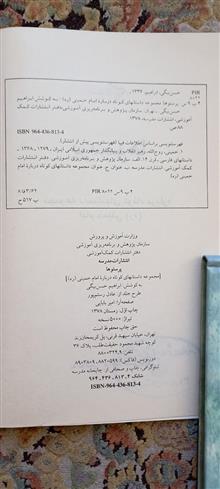 PIR حسن‌بیگی، ابراهیم، ۱۳۳۶ -
۸۰۲۲ پرستوها: مجموعه داستانهای کوتاه درباره امام خمینی (ره) / به کوشش ابراهیم
حسن‌بیگی. - تهران: سازمان پژوهش و برنامه‌ریزی آموزشی، دفتر انتشارات کمک
آموزشی، انتشارات مدرسه، ۱۳۷۸.
۸۸ ص.
ISBN 964-436-813-4
فهرستنویسی براساس اطلاعات فیپا (فهرستنویسی پیش از انتشار).
۱. خمینی، روح‌الله، رهبر انقلاب و بنیانگذار جمهوری اسلامی ایران، ۱۲۷۹ - ۱۳۶۸. -
داستانهای فارسی - قرن ۱۴. الف. سازمان پژوهش و برنامه‌ریزی آموزشی، دفتر انتشارات
کمک آموزشی، انتشارات مدرسه. ب. عنوان. ج. عنوان: مجموعه داستانهای کوتاه درباره امام
خمینی (ره)
وزارت آموزش و پرورش
سازمان پژوهش و برنامه‌ریزی آموزشی
دفتر انتشارات کمک‌آموزشی
انتشارات مدرسه
پرستوها
(مجموعه داستانهای کوتاه دربارهٔ امام خمینی (ره))
به کوشش: ابراهیم حسن‌بیگی
طرح جلد از: عادل رستم‌پور
صفحه‌آرا: امیر بابایی
چاپ اول: زمستان ۱۳۷۸
تیراژ: ۵۰۰۰ نسخه
حق چاپ محفوظ است
تهران، خیابان سپهبد قرنی، پل کریمخان‌زند
کوچه شهید محمود حقیقت‌طلب، پلاک ۳۶
تلفن: ۸۸۰۰۳۲۴-۹
لیتوگرافی، چاپ و صحافی از: چاپخانه مدرسه
شابک ۴-۸۱۳-۴۳۶-۹۶۴
ISBN-964-436-813-4